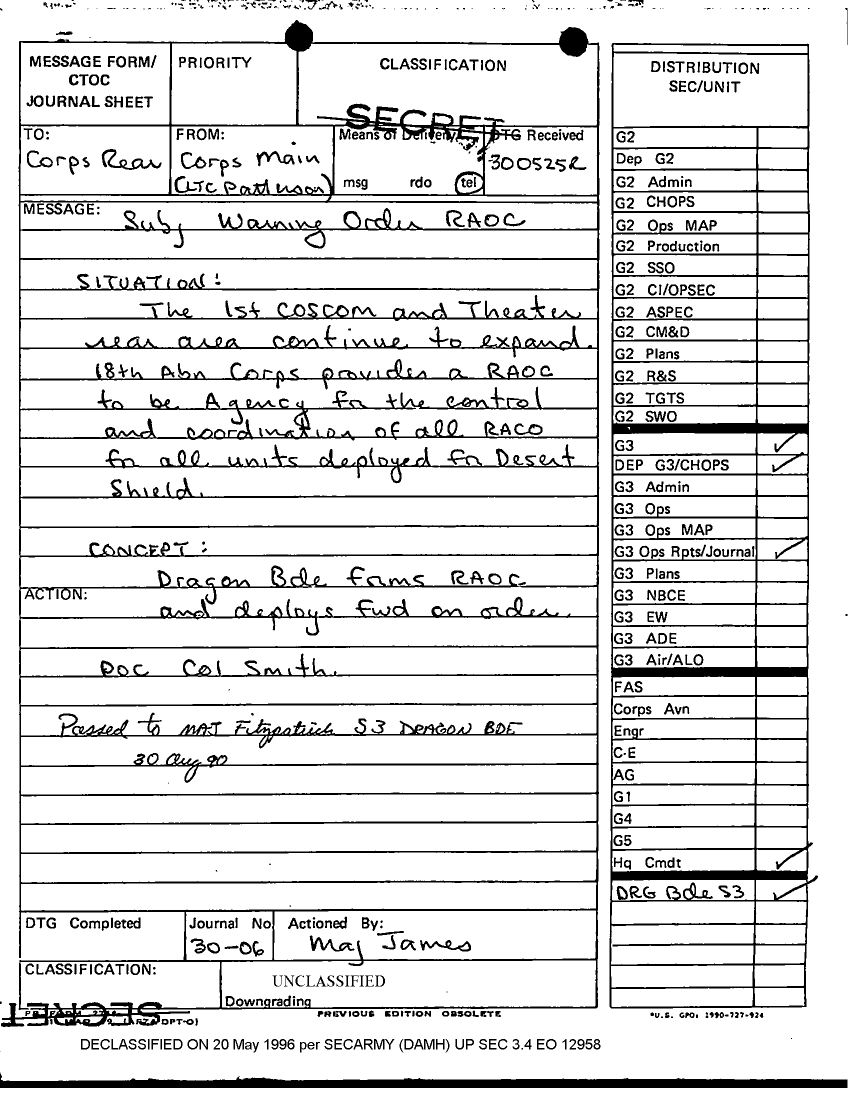 MESSAGE FORM/
CTOC
JOURNAL SHEET
PRIORITY
CLASSIFICATION
SECRET
TO:
Corps Rear
FROM:
Corps Main
(LTC Patterson)
Means of Delivery
msg rdo tel
DTG Received
300525R
MESSAGE:
Subj Warning Order RAOC
SITUATION:
The 1st COSCOM and Theater
rear area continue to expand.
18th Abn Corps provides a RAOC
to be Agency for the control
and coordination of all RACO
for all units deployed for Desert
Shield.
CONCEPT:
Dragon Bde forms RAOC
ACTION:
and deploys fwd on order.
POC Col Smith.
Passed to MAJ Fitzpatrick S3 DRAGON BDE
30 Aug 90
DTG Completed
Journal No
30-06
Actioned By:
Maj James
CLASSIFICATION:
UNCLASSIFIED
Downgrading
SECRET
PREVIOUS EDITION OBSOLETE
DISTRIBUTION
SEC/UNIT
G2
Dep G2
G2 Admin
G2 CHOPS
G2 Ops MAP
G2 Production
G2 SSO
G2 CI/OPSEC
G2 ASPEC
G2 CM&D
G2 Plans
G2 R&S
G2 TGTS
G2 SWO
G3 ✓
DEP G3/CHOPS ✓
G3 Admin
G3 Ops
G3 Ops MAP
G3 Ops Rpts/Journal ✓
G3 Plans
G3 NBCE
G3 EW
G3 ADE
G3 Air/ALO
FAS
Corps Avn
Engr
C-E
AG
G1
G4
G5
Hq Cmdt ✓
DRG Bde S3 ✓
*U.S. GPO: 1990-727-924
DECLASSIFIED ON 20 May 1996 per SECARMY (DAMH) UP SEC 3.4 EO 12958